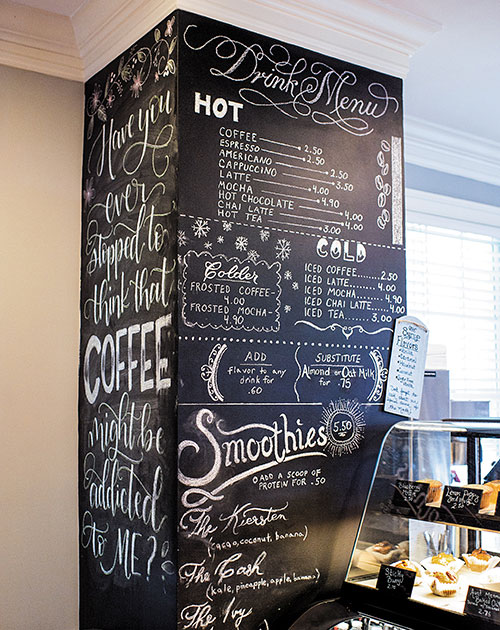 Have you
ever
stopped to
think that
COFFEE
might be
addicted
to ME?
Drink Menu
HOT
COFFEE 2.50
ESPRESSO 2.50
AMERICANO 2.50
CAPPUCCINO 3.50
LATTE 4.00
MOCHA 4.90
HOT CHOCOLATE 4.00
CHAI LATTE 4.00
HOT TEA
COLD
ICED COFFEE 2.50
ICED LATTE
ICED MOCHA
ICED CHAI LATTE 4.00
ICED TEA 3.00
Colder
FROSTED COFFEE
4.00
FROSTED MOCHA
4.90
ADD
Flavor to any
drink for
.60
SUBSTITUTE
Almond or Oat Milk
for .75
Smoothies 5.50
ADD A SCOOP OF
PROTEIN FOR .50
The Kiersten
(cacao, coconut, banana)
The Cash
(kale, pineapple, apple, banana)
The Ivy
Syrup
Flavors
Blueberry
Lemon Poppy
Sticky
Buns
2.50